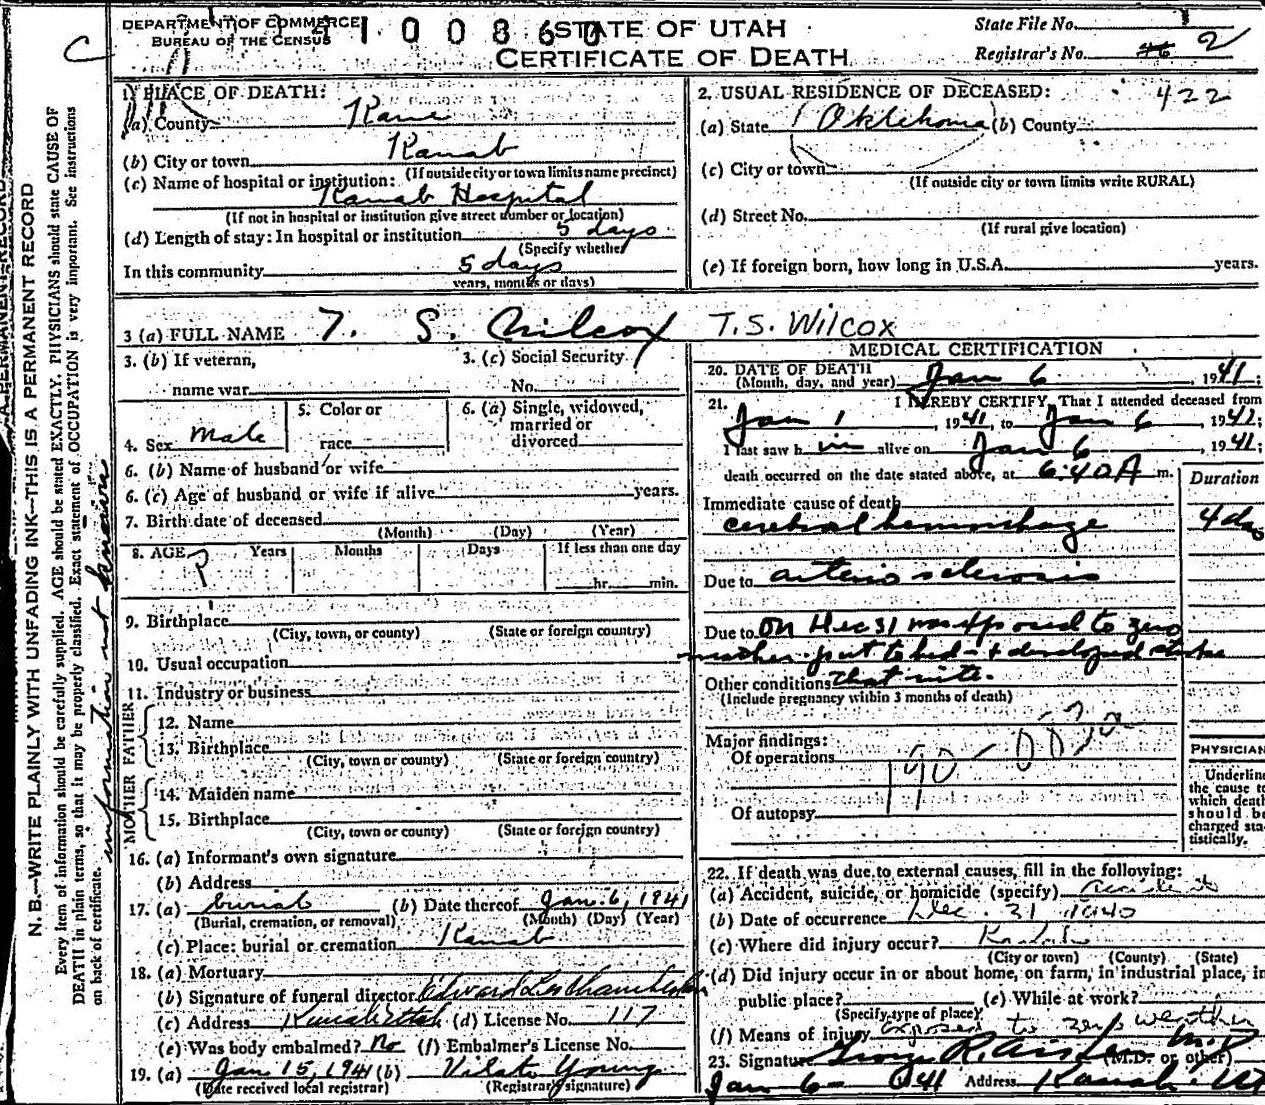 DEPARTMENT OF COMMERCE
BUREAU OF THE CENSUS
C
10086
STATE OF UTAH
CERTIFICATE OF DEATH
State File No. 1
Registrar's No. 46 2
N. B.—WRITE PLAINLY WITH UNFADING INK—THIS IS A PERMANENT RECORD
Every item of information should be carefully supplied. AGE should be stated EXACTLY. PHYSICIANS should state CAUSE OF
DEATH in plain terms, so that it may be properly classified. Exact statement of OCCUPATION is very important. See instructions
on back of certificate.
information not known
1. PLACE OF DEATH:
(a) County Kane
(b) City or town Kanab
(If outside city or town limits name precinct)
(c) Name of hospital or institution:
Kanab Hospital
(If not in hospital or institution give street number or location)
(d) Length of stay: In hospital or institution 5 days
(Specify whether
In this community 5 days
years, months or days)
2. USUAL RESIDENCE OF DECEASED: 422
(a) State Oklehoma (b) County
(c) City or town
(If outside city or town limits write RURAL)
(d) Street No.
(If rural give location)
(e) If foreign born, how long in U.S.A. years.
3 (a) FULL NAME T. S. Wilcox T.S. Wilcox
3. (b) If veteran,
name war
3. (c) Social Security
No.
4. Sex Male
5. Color or
race
6. (a) Single, widowed,
married or
divorced
6. (b) Name of husband or wife
6. (c) Age of husband or wife if alive years.
7. Birth date of deceased
(Month) (Day) (Year)
8. AGE ? Years Months Days If less than one day
hr. min.
9. Birthplace
(City, town, or county) (State or foreign country)
10. Usual occupation
11. Industry or business
FATHER
12. Name
13. Birthplace
(City, town or county) (State or foreign country)
MOTHER
14. Maiden name
15. Birthplace
(City, town or county) (State or foreign country)
16. (a) Informant's own signature
(b) Address
17. (a) burial (b) Date thereof Jan. 6, 1941
(Burial, cremation, or removal) (Month) (Day) (Year)
(c) Place: burial or cremation Kanab
18. (a) Mortuary
(b) Signature of funeral director Edward Chamberlain
(c) Address Kanab Utah (d) License No. 117
(e) Was body embalmed? No (f) Embalmer's License No.
19. (a) Jan 15, 1941 (b) Vilate Young
(Date received local registrar) (Registrar signature)
MEDICAL CERTIFICATION
20. DATE OF DEATH
(Month, day, and year) Jan 6, 1941;
21. I HEREBY CERTIFY, That I attended deceased from
Jan 1, 1941, to Jan 6, 1942;
I last saw h im alive on Jan 6, 1941;
death occurred on the date stated above, at 6:40 A m.
Duration
Immediate cause of death
cerebral hemorrhage 4 da
Due to arterio sclerosis
Due to On Dec 31 was exposed to zero
weather put to bed - + developed stroke
Other conditions that nite.
(Include pregnancy within 3 months of death)
Major findings:
Of operations
Of autopsy
PHYSICIAN
Underline
the cause to
which death
should be
charged sta-
tistically.
22. If death was due to external causes, fill in the following:
(a) Accident, suicide, or homicide (specify) accident
(b) Date of occurrence Dec. 31, 1940
(c) Where did injury occur? Kanab
(City or town) (County) (State)
(d) Did injury occur in or about home, on farm, in industrial place, in
public place? (e) While at work?
(Specify type of place)
(f) Means of injury exposed to zero weather
23. Signature George R. Aiken M.D
(M.D. or other)
Jan 6- 1941 Address Kanab, Ut